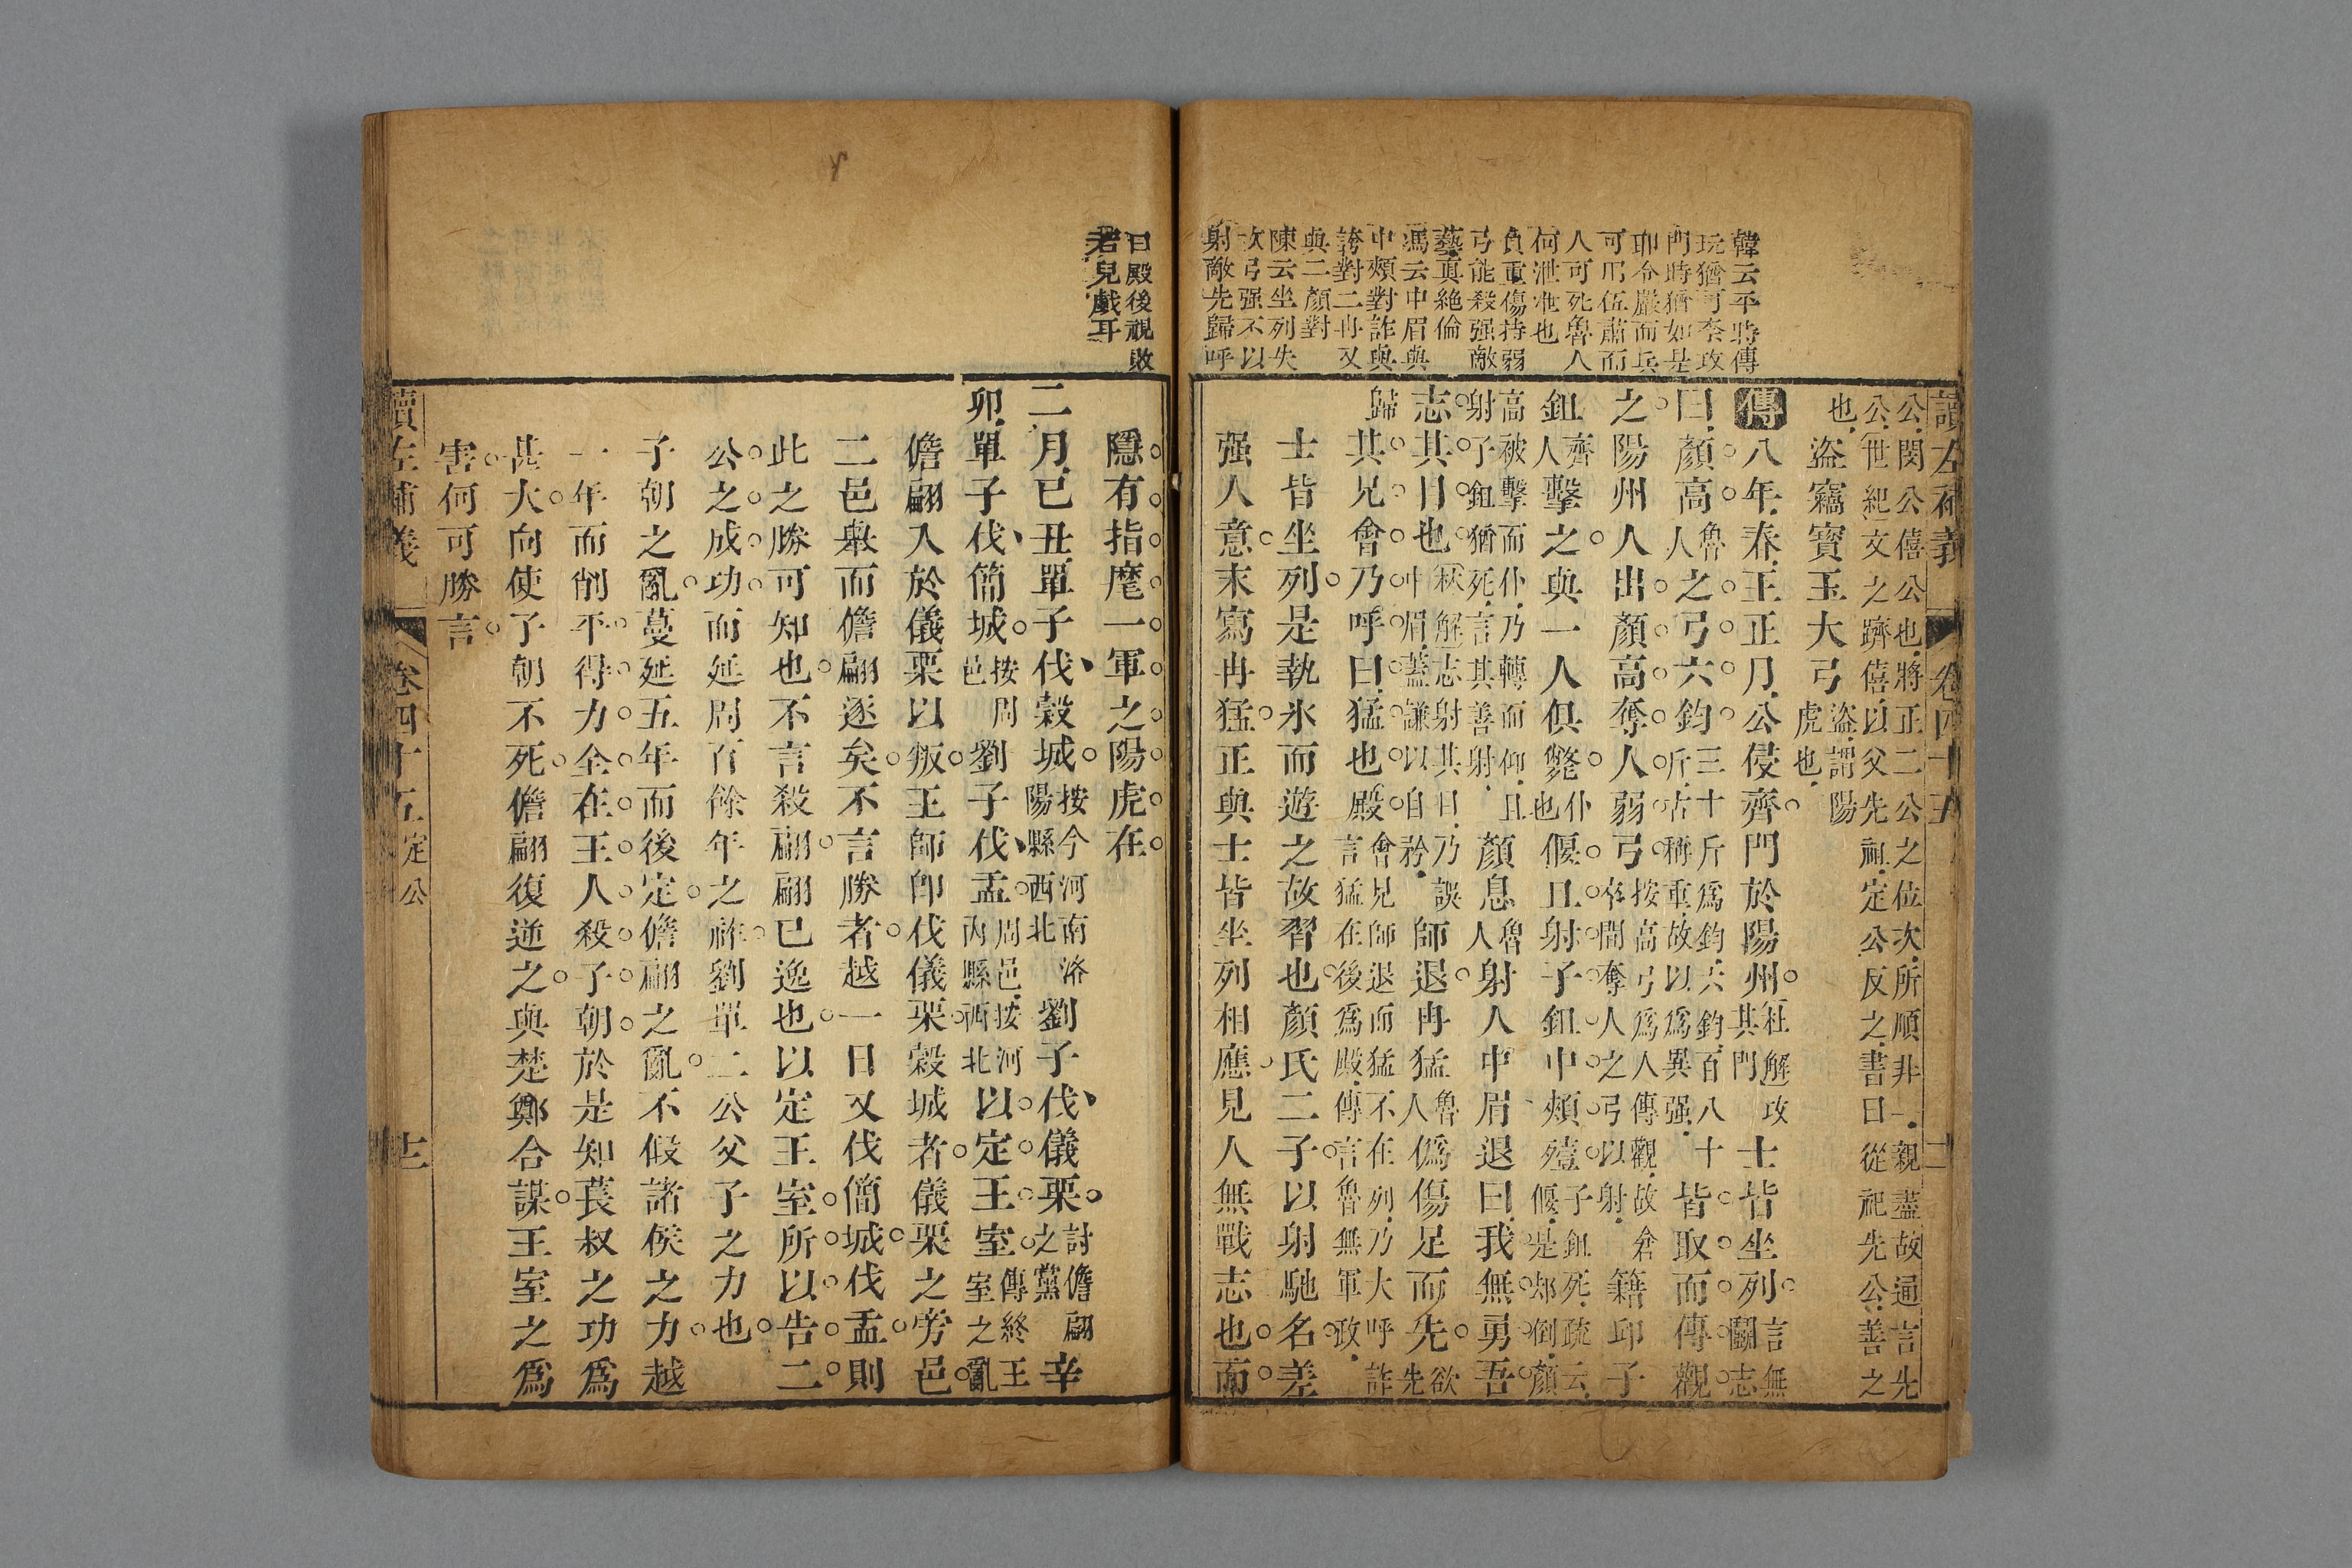 讀左補義 卷四十五 二
韓云平時傳
玩猶可奈攻
門時猶如是
耶令嚴而兵
可用伍肅而
人可死魯人
何泄泄也
負重傷持弱
弓能殺强敵
藝真絕倫
馮云中眉與
中頰對詐與
誇對二冉又
與二顏對
陳云坐列失
次弓强不以
射敵先歸呼
公閔公僖公也將正二公之位次所順非一親盡故通言先
公世紀文之躋僖以父先祖定公反之書曰從祀先公善之
也盜竊寶玉大弓盜謂陽虎也
傳八年春王正月公侵齊門於陽州杜解攻其門士皆坐列言無鬭志
曰顏高魯人之弓六鈞三十斤爲鈞六鈞百八十斤古稱重故以爲異强皆取而傳觀
之陽州人出顏高奪人弱弓按高弓爲人傳觀故倉卒閒奪人之弓以射籍邱子
鉏齊人擊之與一人俱斃仆也偃且射子鉏中頰殪子鉏死疏云偃是郟倒顏
高被擊而仆乃轉而仰且射子鉏猶死言其善射顏息魯人射人中眉退曰我無勇吾
志其目也林解志射其目乃誤中眉蓋謙以自矜師退冉猛魯人僞傷足而先欲先
歸其兄會乃呼曰猛也殿會見師退而猛不在列乃大呼詐言猛在後爲殿傳言魯無軍政
士皆坐列是執冰而遊之故習也顏氏二子以射馳名差
强人意末寫冉猛正與士皆坐列相應見人無戰志也而
曰殿後視敗
者兒戲耳
隱有指麾一軍之陽虎在
二月己丑單子伐穀城按今河南洛陽縣西北劉子伐儀栗討儋翩之黨辛
卯單子伐簡城按周邑劉子伐盂周邑按河内縣西北以定王室傳終王室之亂
儋翩入於儀栗以叛王師即伐儀栗穀城者儀栗之旁邑
二邑舉而儋翩逐矣不言勝者越一日又伐簡城伐盂則
此之勝可知也不言殺翩翩已逸也以定王室所以告二
公之成功而延周百餘年之祚劉單二公父子之力也
子朝之亂蔓延五年而後定儋翩之亂不假諸侯之力越
一年而削平得力全在王人殺子朝於是知萇叔之功爲
甚大向使子朝不死儋翩復逆之與楚鄭合謀王室之爲
害何可勝言
讀左補義 卷四十五 定公 十二